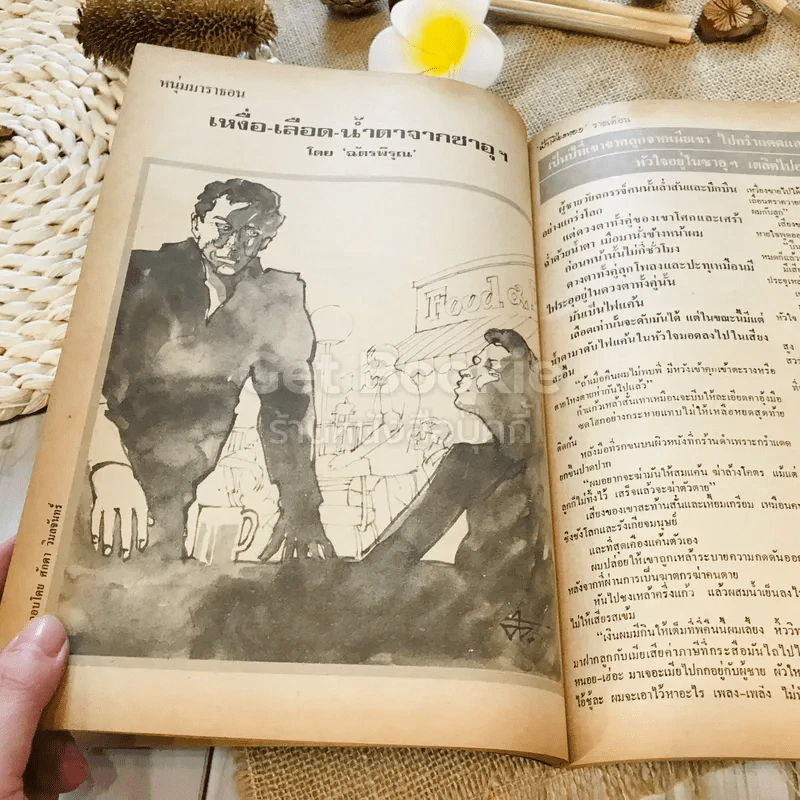 หนุ่มมาราธอน
เหงื่อ-เลือด-น้ำตาจากซาอุฯ
โดย 'ฉัตรพิรุณ'
Food &
Get Bookie
ร้านหนังสือบุ๊คกี้
วาดโดย ศักดา วิมลจันทร์
รายเดือน
เป็นปีที่เขาจากลูกจากเมียเขา ไปกรำแดด
หัวใจอยู่ในซาอุฯ เตลิดไป
ผู้ชายวัยฉกรรจ์คนนั้นล่ำสันและบึกบึน
อย่างแกร่งโลก
แต่ดวงตาทั้งคู่ของเขาโศกและเศร้า
ฉ่ำด้วยน้ำตา เมื่อมานั่งข้างหน้าผม
ก่อนหน้านั้นไม่กี่ชั่วโมง
ดวงตาทั้งคู่ลุกโพลงและปะทุเหมือนมี
ไฟระอุอยู่ในดวงตาทั้งคู่นั้น
มันเป็นไฟแค้น
เลือดเท่านั้นจะดับมันได้ แต่ในขณะนี้มีแต่
น้ำตามาดับไฟแค้นในหัวใจมอดลงไปในเสียง
สะอื้น
"ถ้าเมื่อคืนผมไม่พบพี่ มีหวังเข้าคุกเข้าตะรางหรือ
ตายโหงตายห่ากันไปแล้ว"
กำแก้วเหล้าสั่นเทาเหมือนจะบีบให้ละเอียดคาอุ้งมือ
ซดโฮกอย่างกระหายแทบไม่ให้เหลือหยดสุดท้าย
ติดก้น
หลังมือที่รกขนบนผิวหนังที่กร้านดำเพราะกรำแดด
ยกขึ้นปาดปาก
"ผมอยากจะฆ่ามันให้สมแค้น ฆ่าล้างโคตร แม้แต่
ลูกก็ไม่ทิ้งไว้ เสร็จแล้วจะฆ่าตัวตาย"
เสียงของเขาสะท้านสั่นและเหี้ยมเกรียม เหมือน
ชิงชังโลกและรังเกียจมนุษย์
และที่สุดเคืองแค้นตัวเอง
ผมปล่อยให้เขาถูกเหล้าระบายความกดดันออก
หลังจากที่ผ่านการเป็นฆาตกรฆ่าคนตาย
หันไปชงเหล้าครึ่งแก้ว แล้วผสมน้ำเย็นลง
ไม่ให้เสียรสเข้ม
"เงินผมมีกินให้เต็มที่พี่คืนนี้ผมเลี้ยง
มาฝากลูกกับเมียเสียค่าภาษีที่กระสือมันไถไป
หนอย-เฮ่อะ มาเจอะเมียไปกกอยู่กับผู้ชาย
ไอ้ชู้ละ ผมจะเอาไว้หาอะไร เพลง-เพลิง